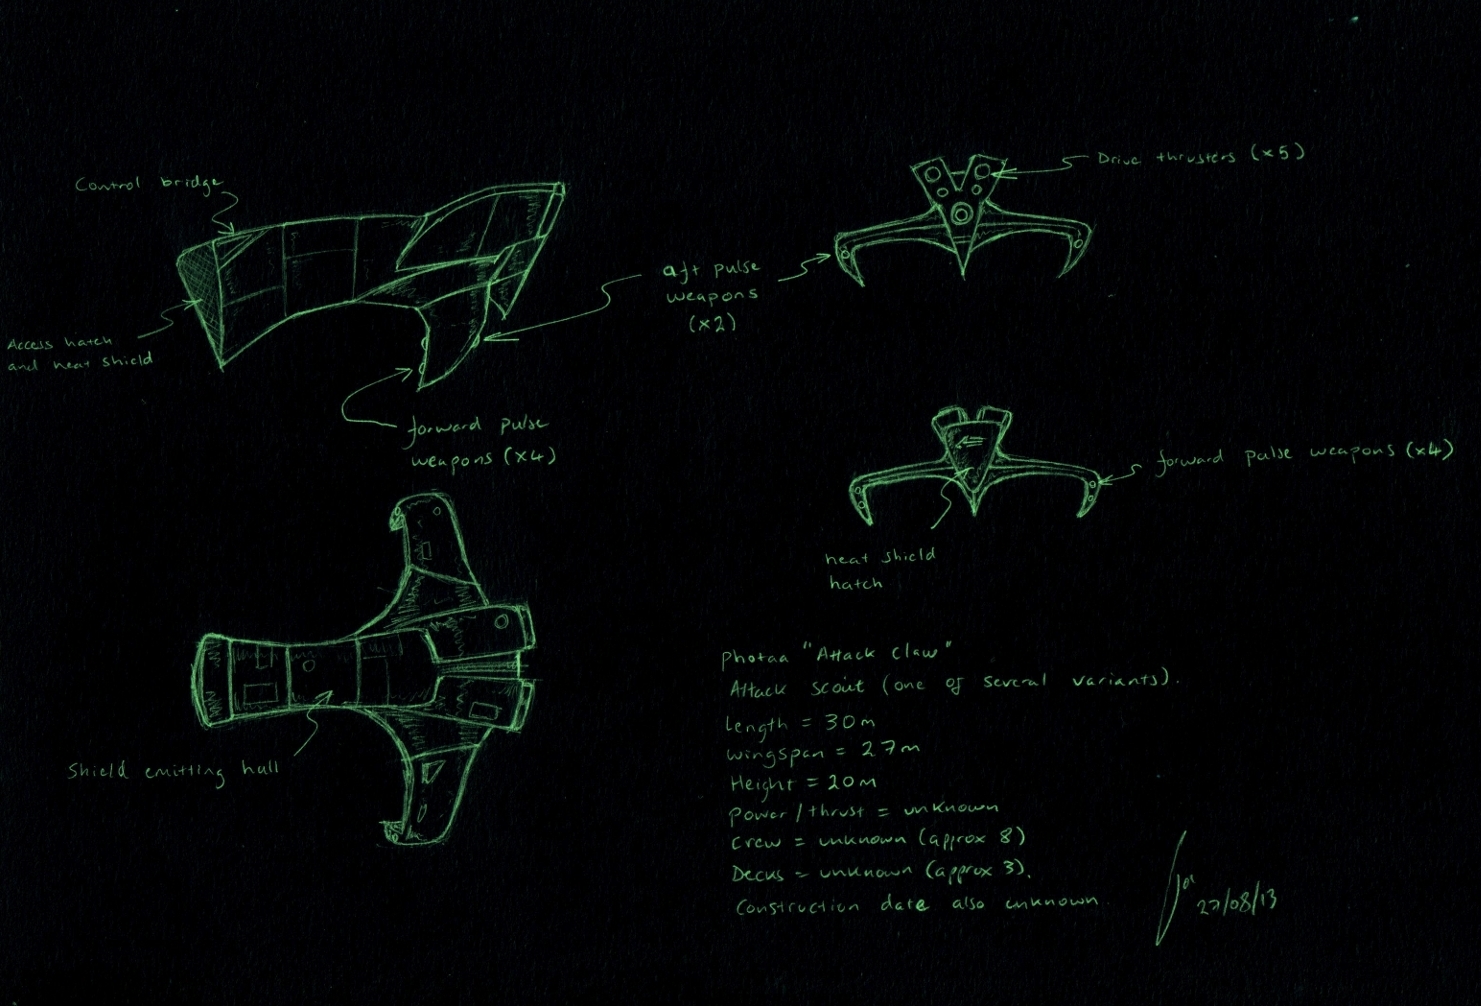 Control bridge
Access hatch
and heat shield
forward pulse
weapons (x4)
aft pulse
weapons
(x2)
Drive thrusters (x5)
forward pulse weapons (x4)
heat shield
hatch
Shield emitting hull
photaa "Attack claw"
Attack scout (one of several variants).
Length = 30m
wingspan = 27m
Height = 20m
power/thrust = unknown
crew = unknown (approx 8)
Decks = unknown (approx 3).
Construction date also unknown.
27/08/13